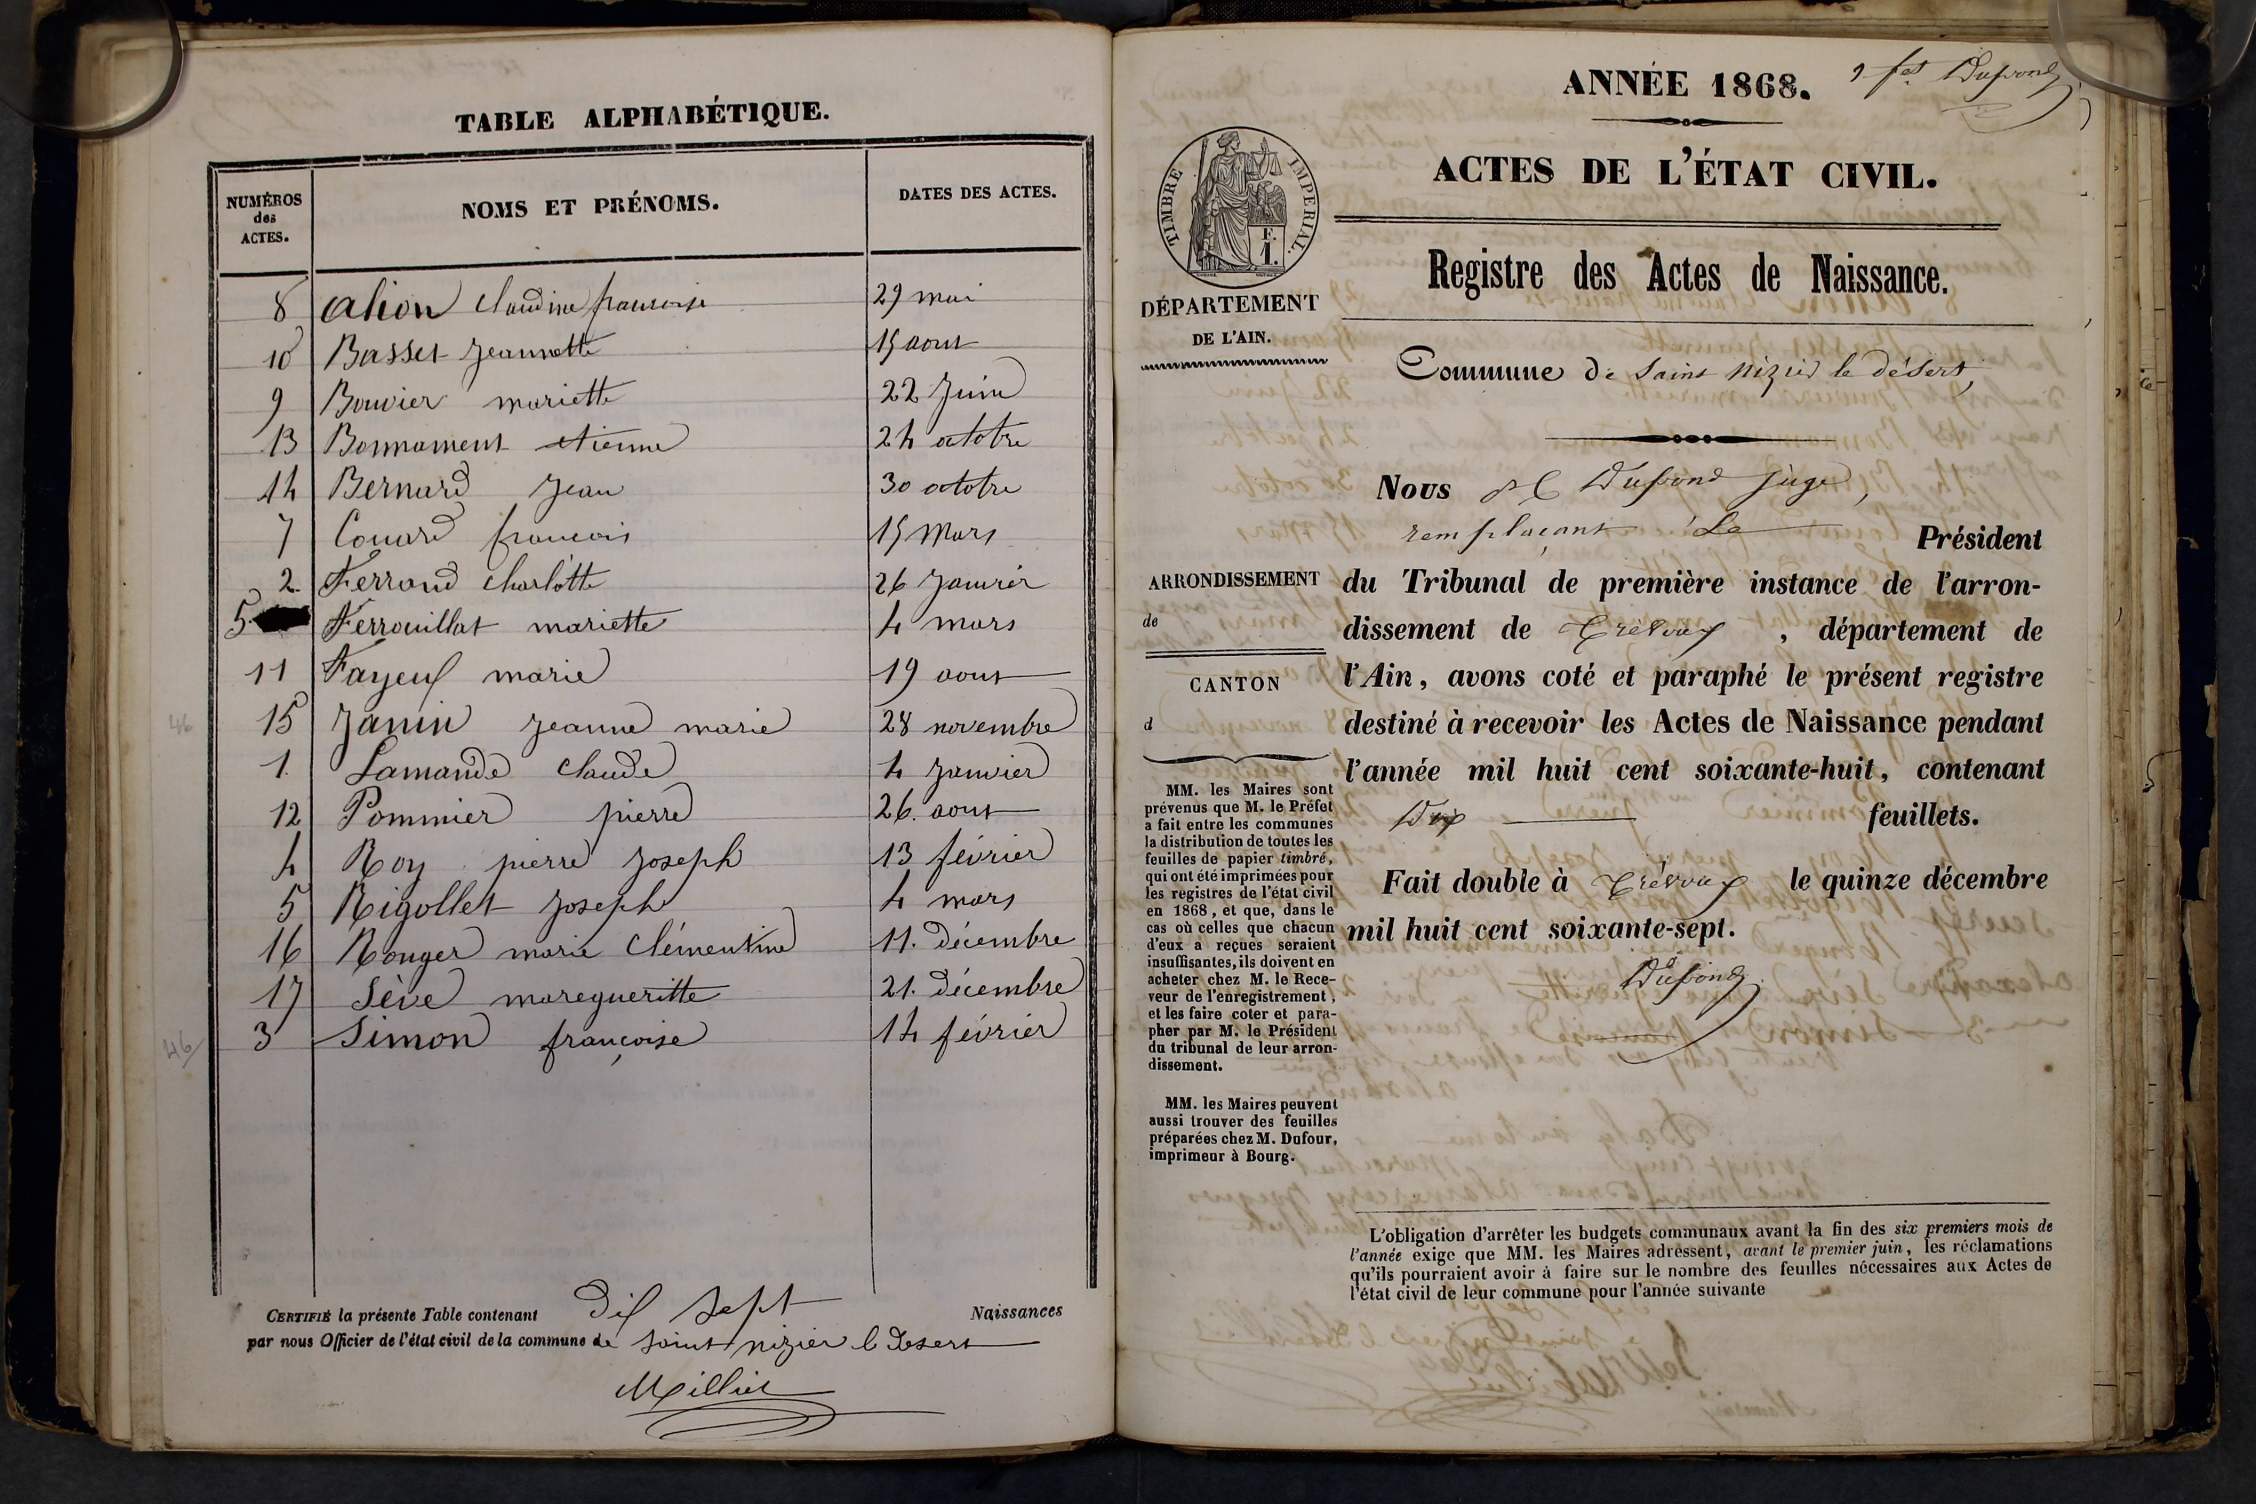 TABLE ALPHABÉTIQUE.
NUMÉROS des ACTES. NOMS ET PRÉNOMS. DATES DES ACTES.
8 alion claudine francoise 29 mai
10 Basset Jeannette 15 aout
9 Bouvier mariette 22 Juin
13 Bonnament etienne 24 octobre
14 Bernard Jean 30 octobre
7 Couard francois 15 Mars
2. Ferrand Charlotte 26 Janvier
5. Ferrouillat mariette 4 mars
11 Fayeux marie 19 aout
15 Janin Jeanne marie 28 novembre
1. Lamande claude 4 Janvier
12 Pommier pierre 26. aout
4 Roy pierre Joseph 13 février
5 Rigollet Joseph 4 mars
16 Rouger marie Clémentine 11. Décembre
17 Sève maregueritte 21. Décembre
3 Simon françoise 14 février
46
46
CERTIFIÉ la présente Table contenant Dix sept Naissances
par nous Officier de l'état civil de la commune de saint nizier le Desert
Milliet
1 fet Dupond
ANNÉE 1868.
ACTES DE L'ÉTAT CIVIL.
TIMBRE IMPERIAL.
F.
1.
Registre des Actes de Naissance.
DÉPARTEMENT
DE L'AIN.
Commune De Saint Nizier le désert
Nous Dupond Juge,
remplaçant Le Président
ARRONDISSEMENT
de
du Tribunal de première instance de l'arron-
dissement de Trévoux, département de
l'Ain, avons coté et paraphé le présent registre
destiné à recevoir les Actes de Naissance pendant
l'année mil huit cent soixante-huit, contenant
Dix feuillets.
Fait double à Trévoux le quinze décembre
mil huit cent soixante-sept.
Dupond
CANTON
d
MM. les Maires sont
prévenus que M. le Préfet
a fait entre les communes
la distribution de toutes les
feuilles de papier timbré,
qui ont été imprimées pour
les registres de l'état civil
en 1868, et que, dans le
cas où celles que chacun
d'eux a reçues seraient
insuffisantes, ils doivent en
acheter chez M. le Rece-
veur de l'enregistrement,
et les faire coter et para-
pher par M. le Président
du tribunal de leur arron-
dissement.
MM. les Maires peuvent
aussi trouver des feuilles
préparées chez M. Dufour,
imprimeur à Bourg.
L'obligation d'arrêter les budgets communaux avant la fin des six premiers mois de
l'année exige que MM. les Maires adressent, avant le premier juin, les réclamations
qu'ils pourraient avoir à faire sur le nombre des feuilles nécessaires aux Actes de
l'état civil de leur commune pour l'année suivante